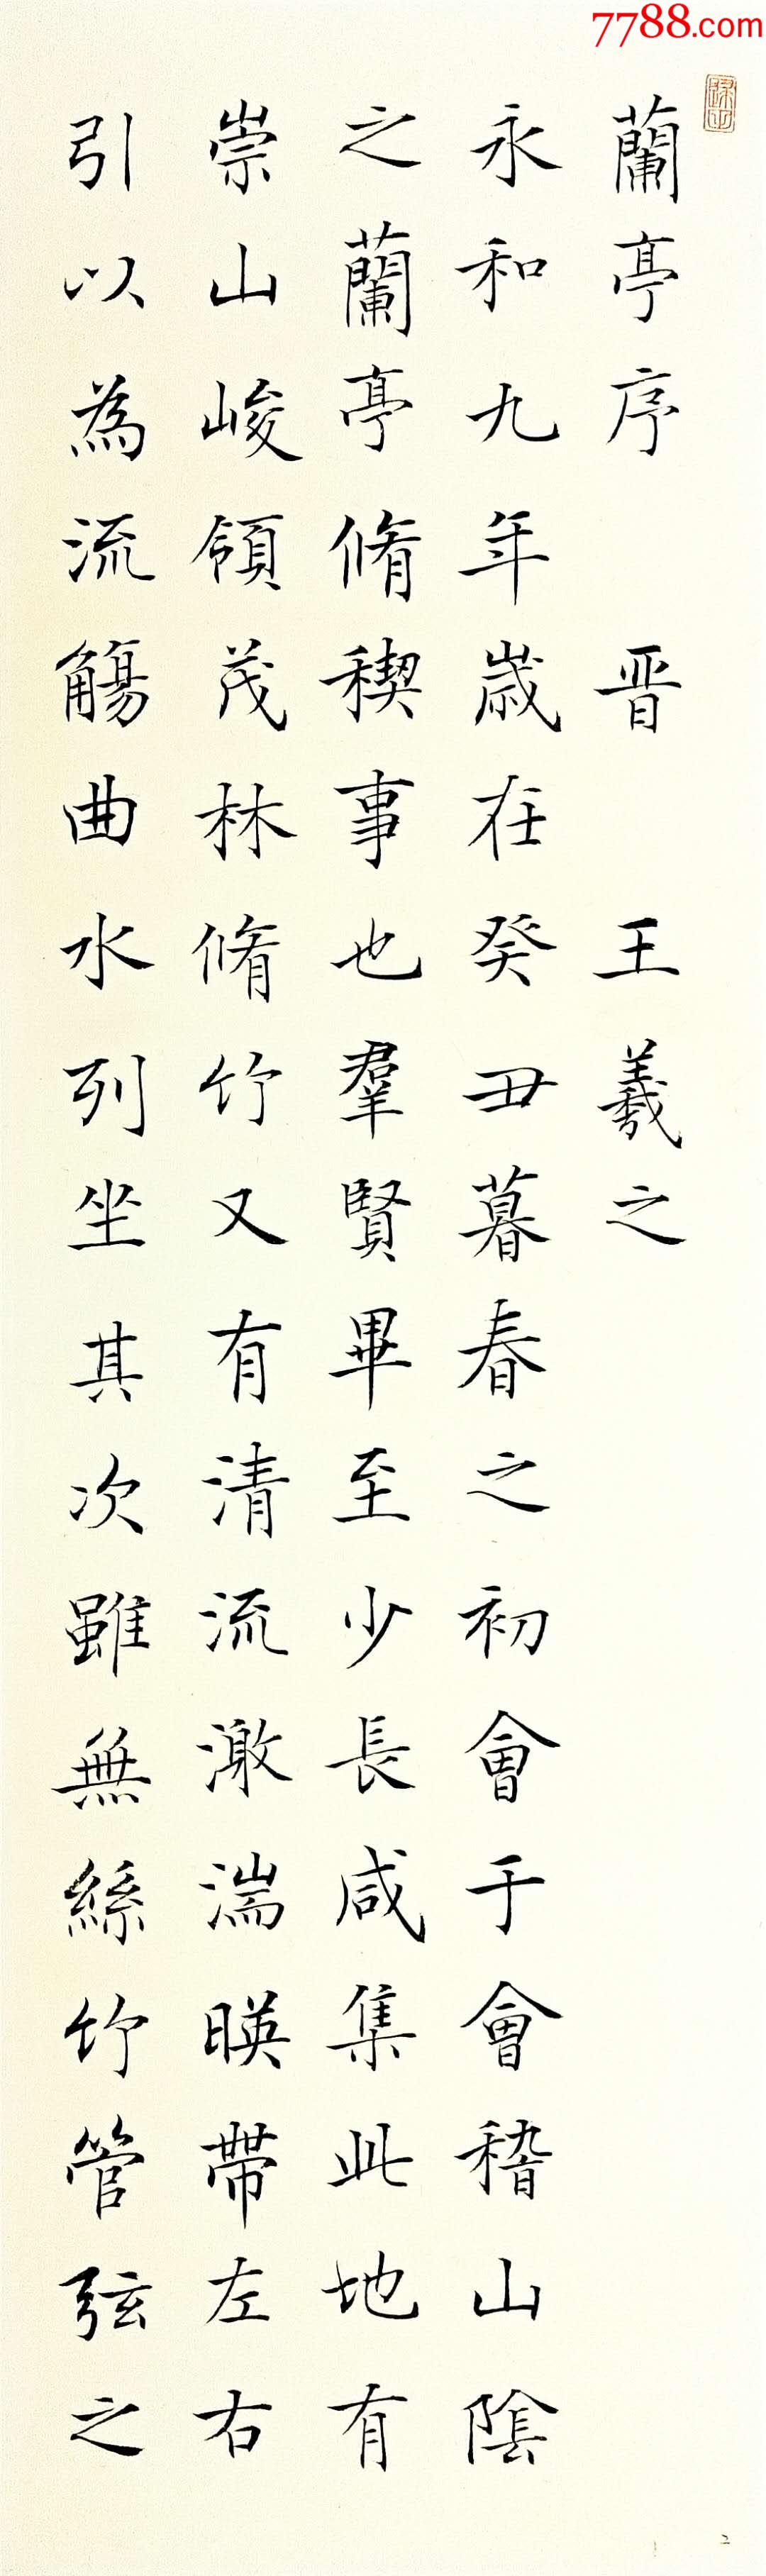 7788.com
蘭亭序 晋 王羲之
永和九年歲在癸丑暮春之初會于會稽山陰
之蘭亭脩稧事也羣賢畢至少長咸集此地有
崇山峻領茂林脩竹又有清流激湍暎帶左右
引以為流觴曲水列坐其次雖無絲竹管弦之